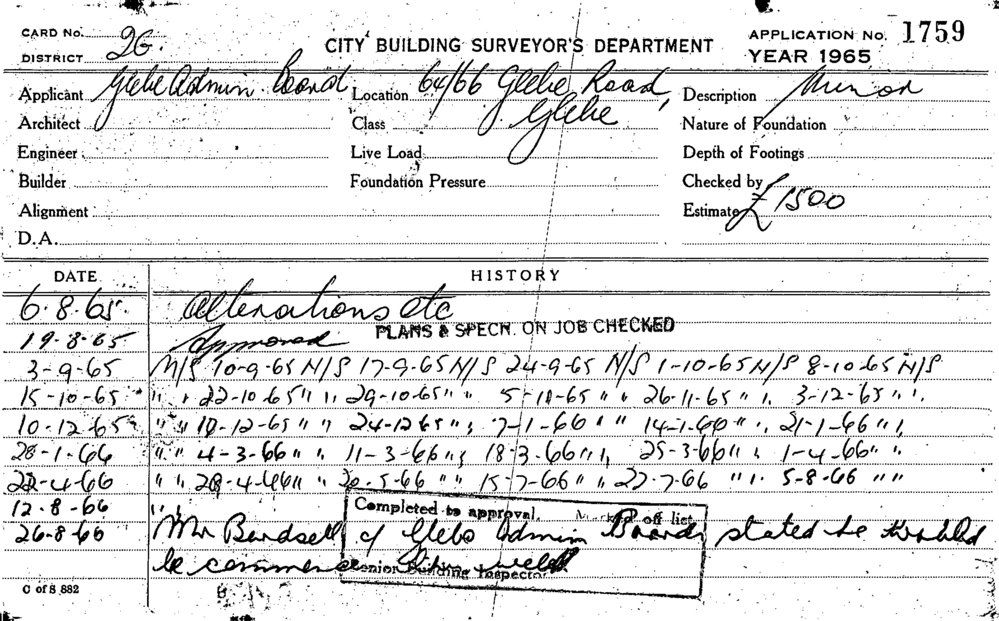 CARD No. 2G. CITY BUILDING SURVEYOR'S DEPARTMENT APPLICATION No. 1759
DISTRICT YEAR 1965
Applicant Glebe Admin. Board Location 64/66 Glebe Road, Glebe Description Minor
Architect Class Nature of Foundation
Engineer Live Load Depth of Footings
Builder Foundation Pressure Checked by
Alignment Estimate £1500
D.A.
DATE HISTORY
6.8.65. Alterations etc
19-8-65 Approved PLANS & SPECN. ON JOB CHECKED
3-9-65 N/S 10-9-65 N/S 17-9-65 N/S 24-9-65 N/S 1-10-65 N/S 8-10-65 N/S
15-10-65 " " 22-10-65 " " 29-10-65 " " 5-11-65 " " 26-11-65 " " 3-12-65 " "
10-12-65 " " 18-12-65 " " 24-12-65 " " 7-1-66 " " 14-1-66 " " 21-1-66 " "
28-1-66 " " 4-3-66 " " 11-3-66 " " 18-3-66 " " 25-3-66 " " 1-4-66 " "
22-4-66 " " 29-4-66 " " 20-5-66 " " 15-7-66 " " 22-7-66 " " 5-8-66 " "
12-8-66 " "
Completed to approval. off list
26-8-66 Mr Birdsell of Glebe Admin Board stated he
be commence
Senior Building Inspector
C of S 882